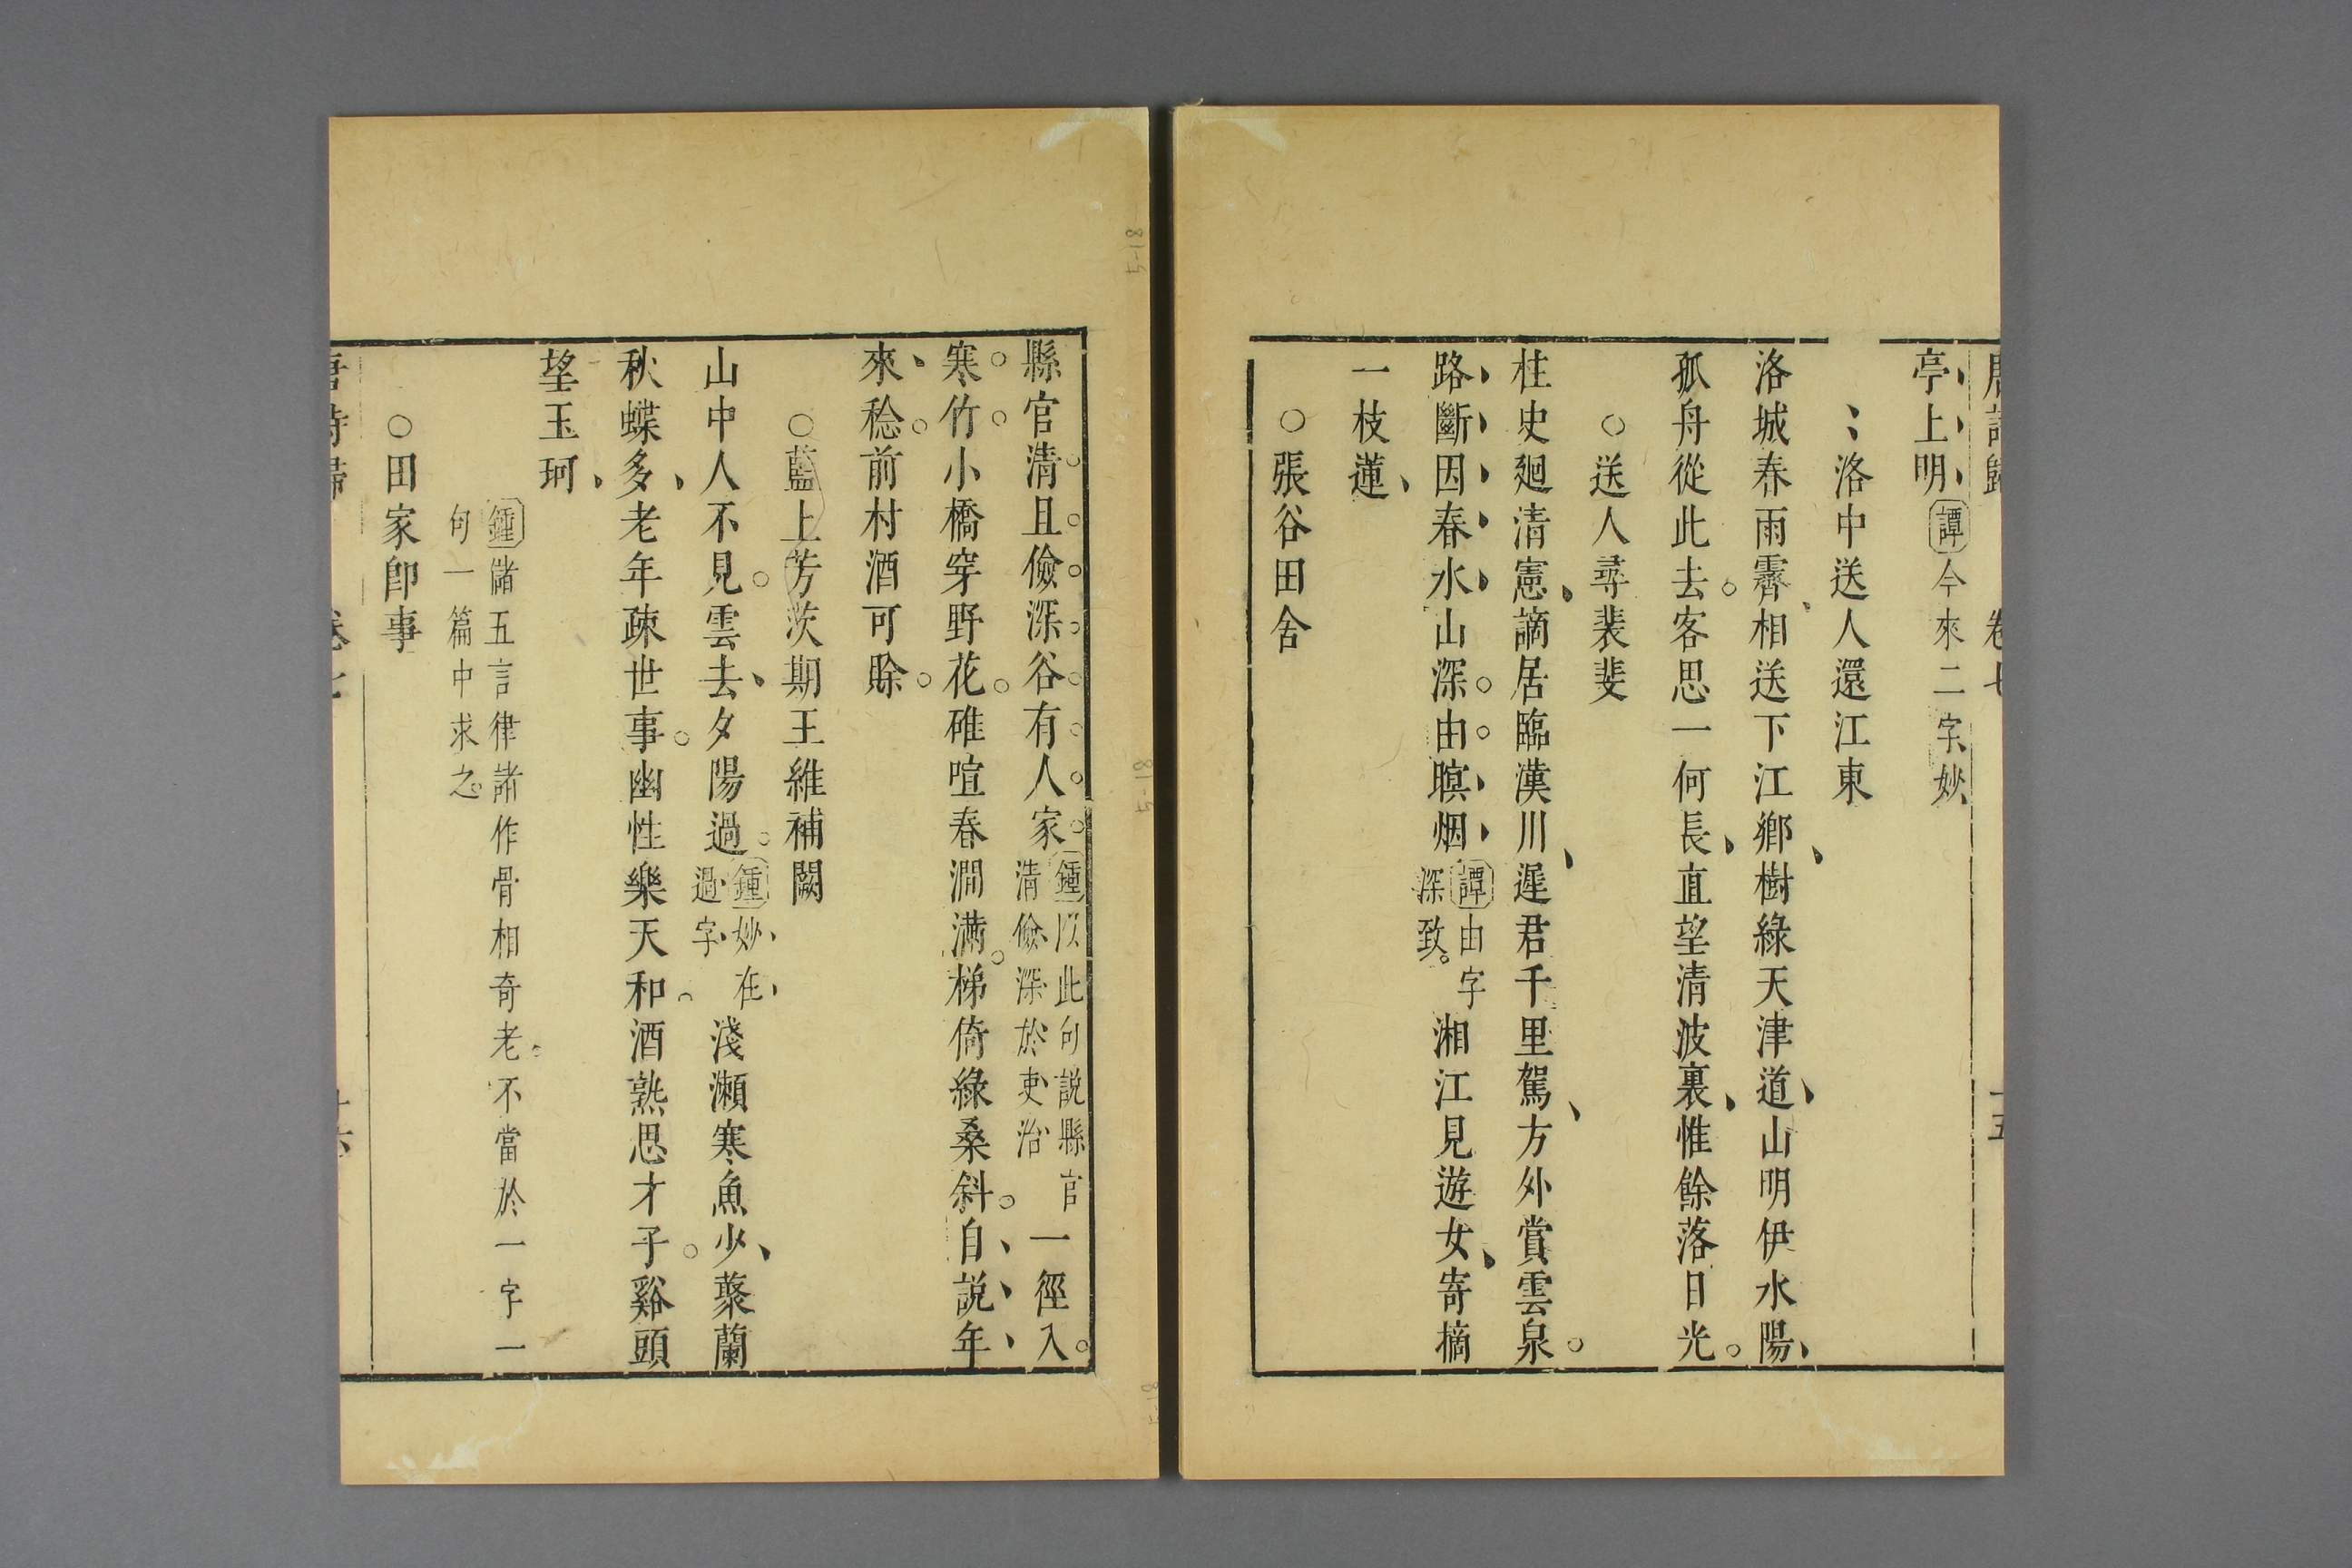 唐詩歸 卷七 十五
亭上明 譚今來二字妙
洛中送人還江東
洛城春雨霽相送下江鄉樹綠天津道山明伊水陽
孤舟從此去客思一何長直望清波裏惟餘落日光
○送人尋裴斐
柱史廻清憲謫居臨漢川遲君千里駕方外賞雲泉
路斷因春水山深由暝烟 譚由字深致 湘江見遊女寄摘
一枝蓮
○張谷田舍
縣官清且儉深谷有人家 鍾以此句説縣官清儉深於吏治 一徑入
寒竹小橋穿野花碓喧春澗滿梯倚綠桑斜自説年
來稔前村酒可賖
○藍上芳茨期王維補闕
山中人不見雲去夕陽過 鍾妙在過字 淺瀨寒魚少藂蘭
秋蝶多老年疎世事幽性樂天和酒熟思才子谿頭
望玉珂
鍾儲五言律諸作骨相奇老不當於一字一
句一篇中求之
○田家卽事
唐詩歸 卷七 十六